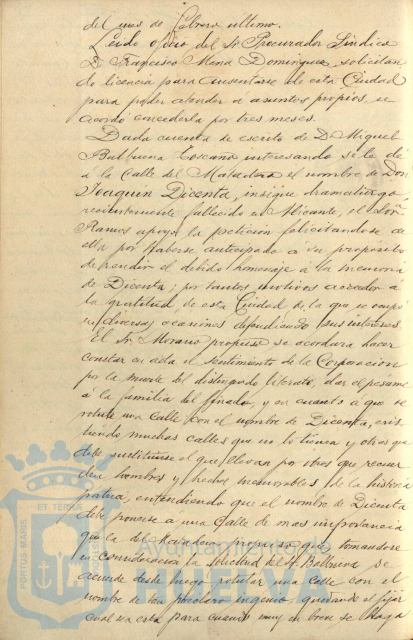 del mes de Febrero último.
Leido oficio del Sr Procurador Síndico
D. Francisco Mena Domínguez, solicitan
do licencia para ausentarse de esta Ciudad
para poder atender a asuntos propios, se
acordó concederla por tres meses.
Dada cuenta de escrito de D. Miguel
Balbuena Toscano interesando se le dé
á la Calle del Matadero el nombre de Don
Joaquin Dicenta, insigne dramaturgo,
recientemente fallecido en Alicante, el Señor
Ramos apoya la petición felicitandose de
ella por haberse anticipado a su propósito
de rendir el debido homenaje á la memoria
de Dicenta; por tantos motivos acreedor á
la gratitud de esta Ciudad de la que se ocupó
en diversas ocasiones defendiendo sus intereses.
El Sr. Morano propuso se acordara hacer
constar en acta el sentimiento de la Corporacion
por la muerte del distinguido literato, dar el pésame
á la familia del finado, y en cuanto á que se
rotule una calle con el nombre de Dicenta, exis
tiendo muchas calles que no lo tienen y otras que
debe sustituirse el que llevan por otros que recuer
den hombres y hechos memorables de la historia
patria, entendiendo que el nombre de Dicenta
debe ponerse a una calle de mas importancia
que la del Matadero, propuso que tomandose
en consideración la solicitud del Sr Balbuena se
acuerde desde luego rotular una calle con el
nombre de tan preclaro ingenio, quedando el fijar
cual sea esta para cuando muy en breve se haga
PORTUS MARIS ET TERRAE CUSTODIA
Ayuntamiento de
HUELVA